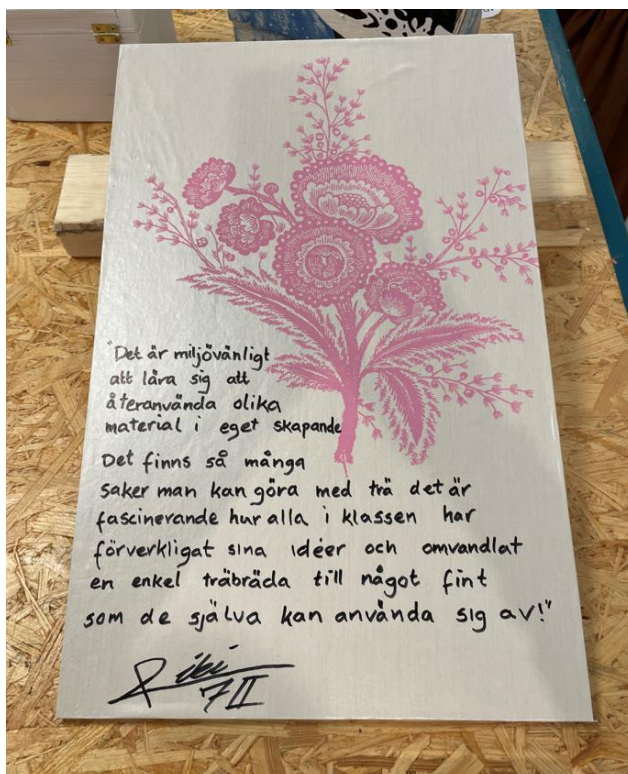 "Det är miljövänligt
att lära sig att
återanvända olika
material i eget skapande
Det finns så många
saker man kan göra med trä det är
fascinerande hur alla i klassen har
förverkligat sina idéer och omvandlat
en enkel träbräda till något fint
som de själva kan använda sig av!"
7 II